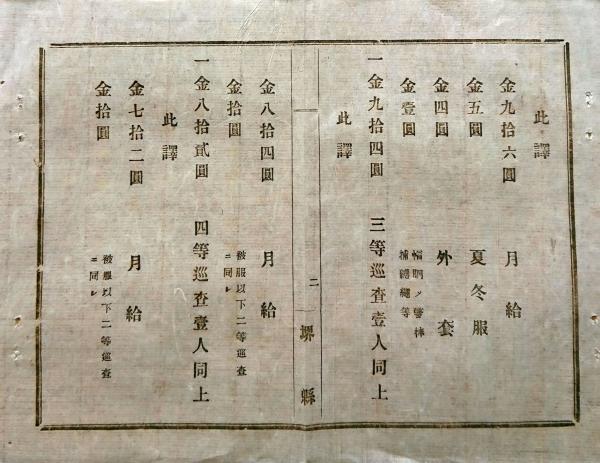 此譯
金九拾六圓 月給
金五圓 夏冬服
金四圓 外套
金壹圓 帽
捕縛繩等
一金九拾四圓 三等巡査壹人同上
此譯
二 堺縣
金八拾四圓 月給
金拾圓 被服以下二等巡査
ニ同シ
一金八拾貳圓 四等巡査壹人同上
此譯
金七拾二圓 月給
金拾圓 被服以下二等巡査
ニ同シ